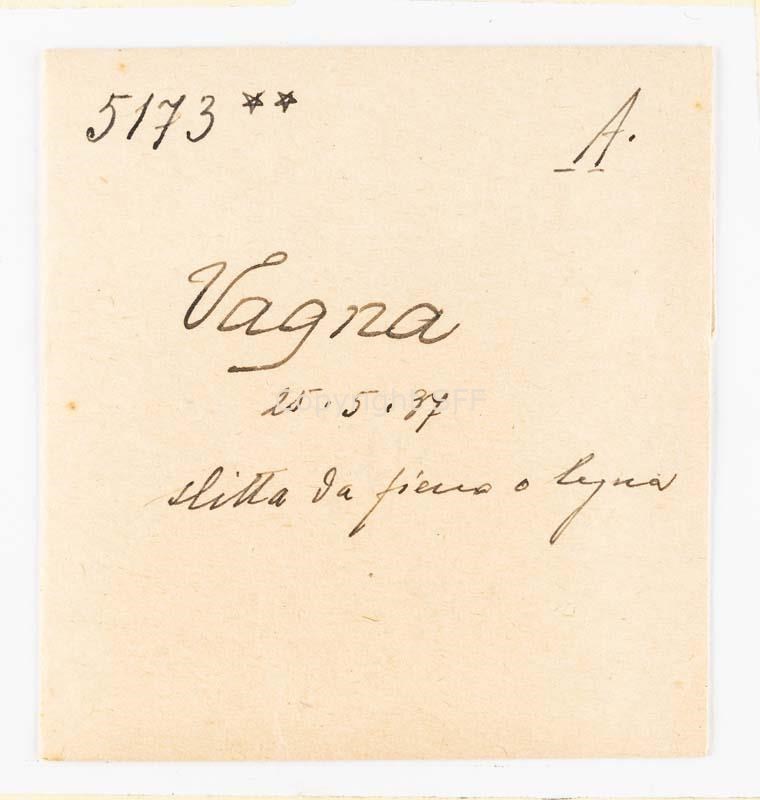 5173 ** A.
Vagna
25.5.37
slitta da fieno o legna
Copyright SFF